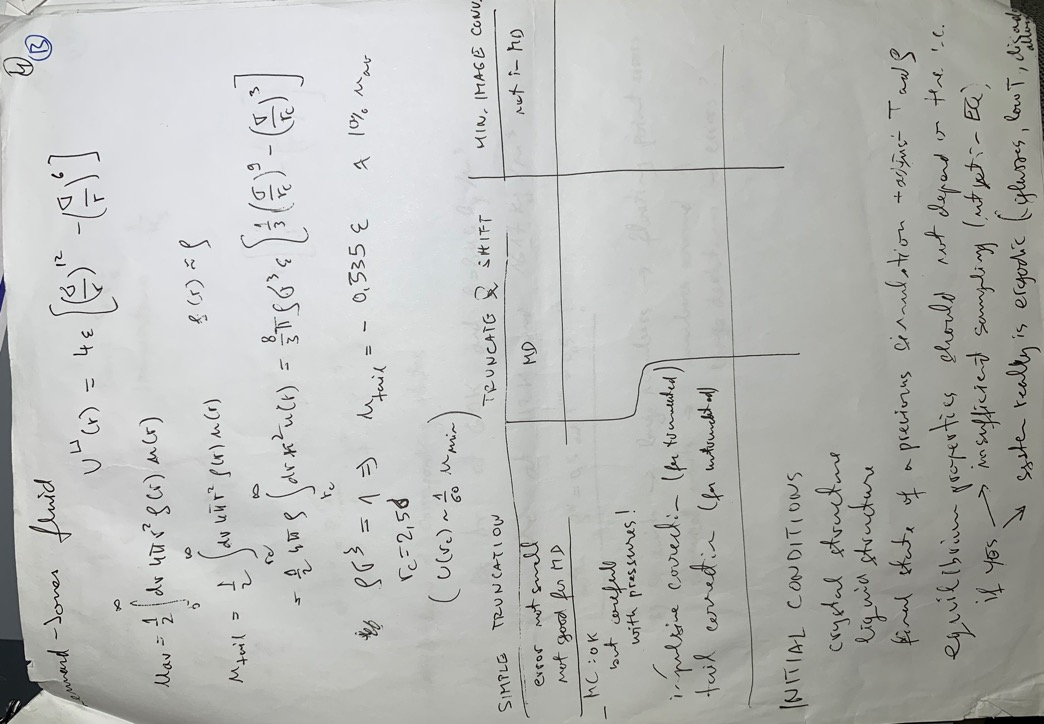 4
13
Lennard-Jones fluid
U^LJ(r) = 4ε [(σ/r)^12 - (σ/r)^6]
u_av = 1/2 ∫_0^∞ dr 4πr² ρ(r) u(r)
u_tail = 1/2 ∫_rc^∞ dr 4πr² ρ(r) u(r) ρ(r) ≈ ρ
= 1/2 4πρ ∫_rc^∞ dr r² u(r) = 8/3 πρσ³ε [1/3 (σ/rc)^9 - (σ/rc)^3]
ρσ³ = 1 ⇒ u_tail = - 0,535 ε 10% u_av
rc = 2,5σ
(U(rc) ~ 1/60 u_min)
SIMPLE TRUNCATION TRUNCATE & SHIFT MIN. IMAGE CONV.
error not small MD not in MD
not good for MD
- MC: OK
but careful
with pressures!
impulsive correction (for truncated)
tail correction (for untruncated)
INITIAL CONDITIONS
crystal structure
liquid structure
final state of a previous simulation + adjust T and ρ
equilibrium properties should not depend on the i.c.
if yes → insufficient sampling (not in EQ)
↘ system really is ergodic (glasses, low T,